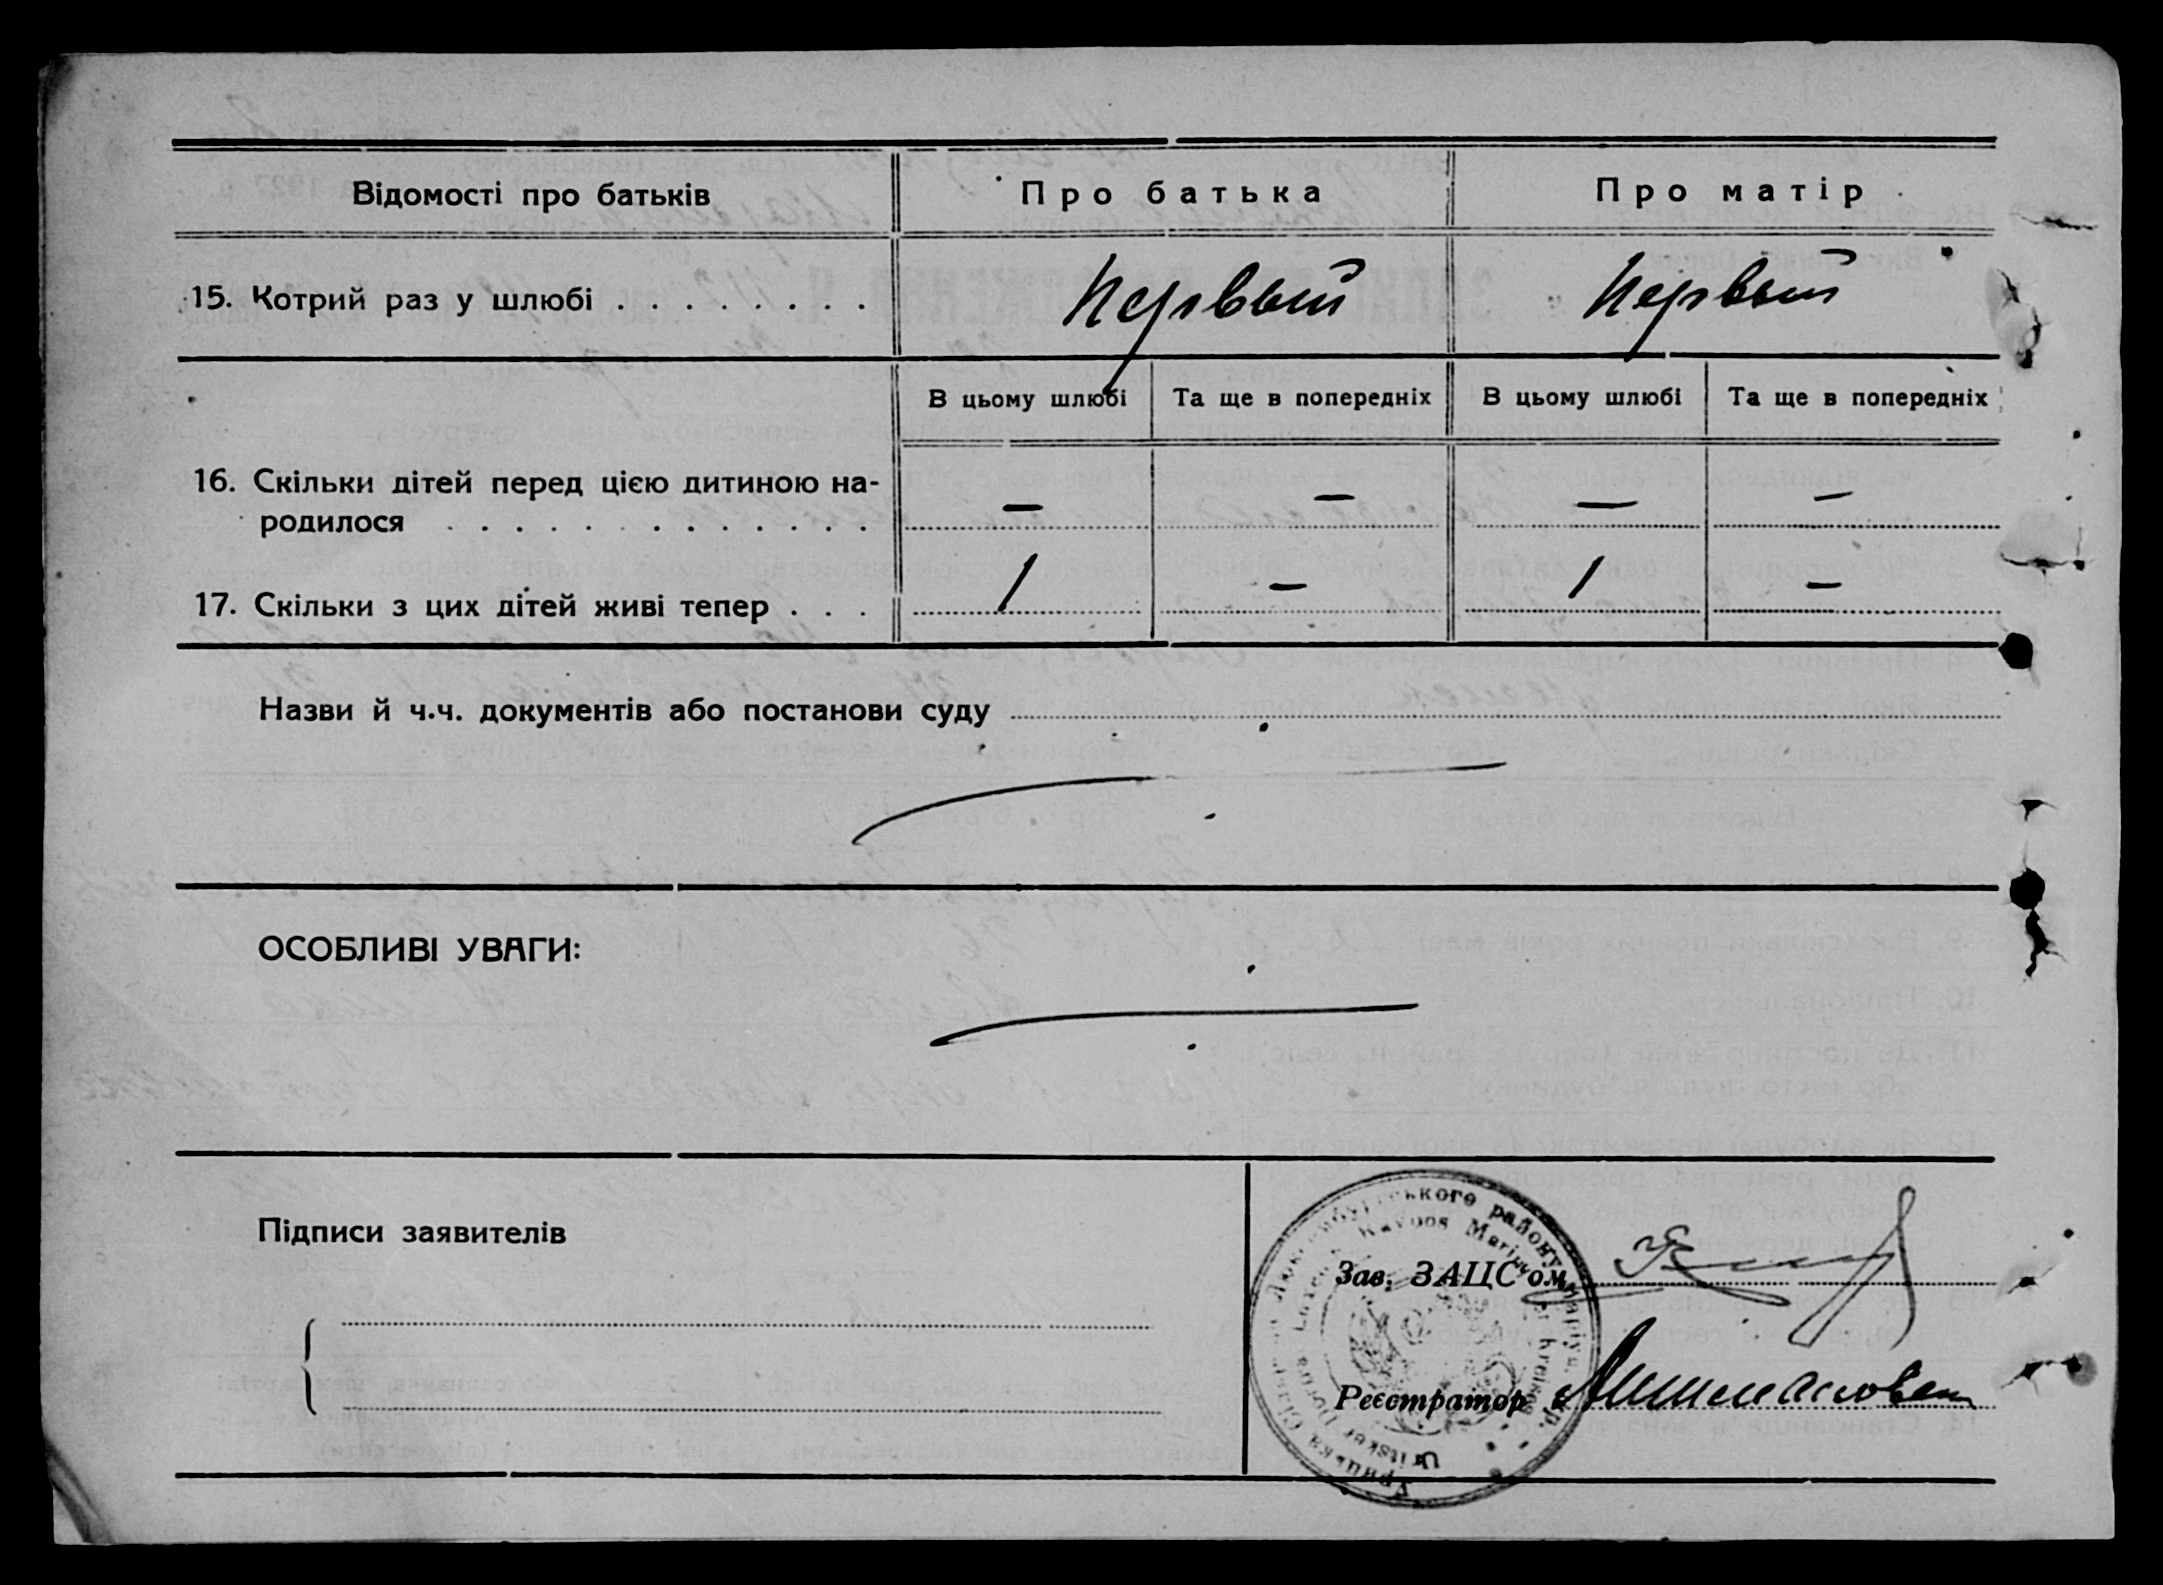 Відомості про батьків
Про батька
Про матір
15. Котрий раз у шлюбі . . . . . . . .
Первый
Первый
В цьому шлюбі
Та ще в попередніх
В цьому шлюбі
Та ще в попередніх
16. Скільки дітей перед цією дитиною на-
родилося . . . . . . . . . . . . .
— — — —
17. Скільки з цих дітей живі тепер . . .
1 — 1 —
Назви й ч.ч. документів або постанови суду
ОСОБЛИВІ УВАГИ:
Підписи заявителів
Зав. ЗАЦС'ом
Реєстратор
району
Kreises
Uritsker